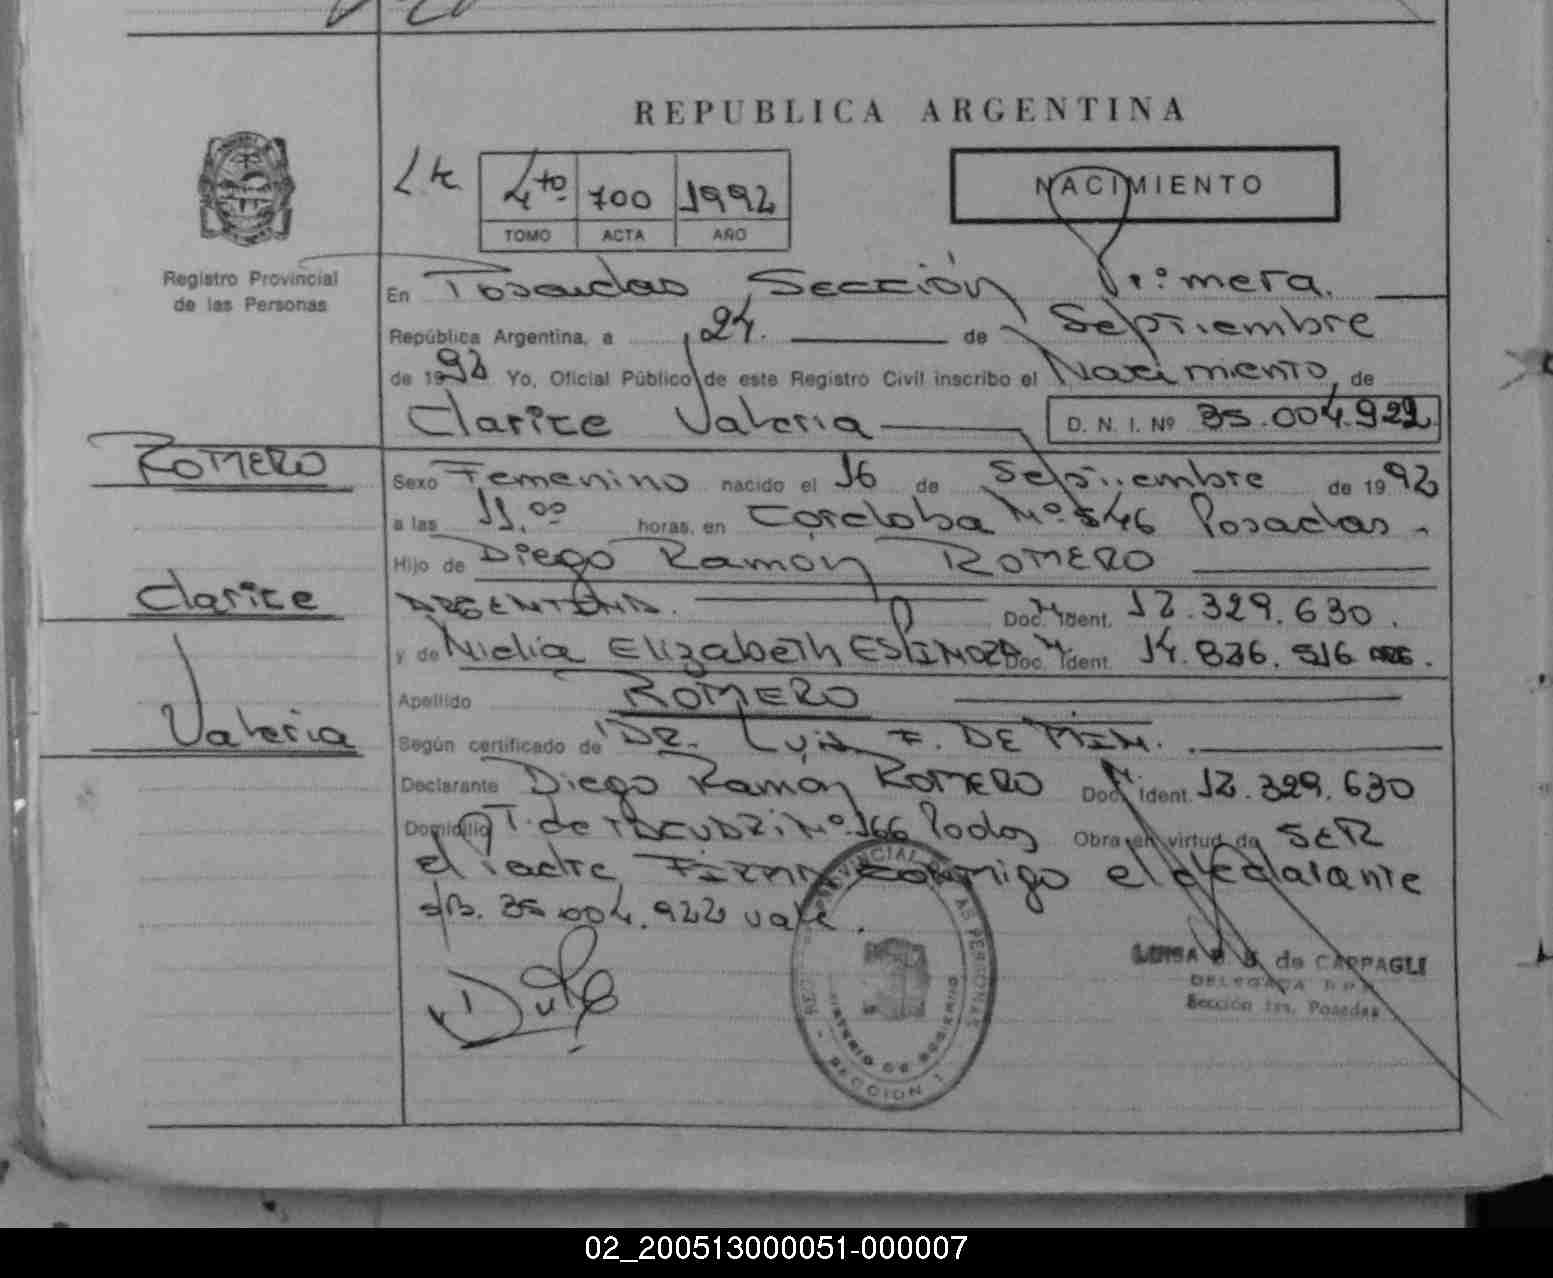 REPUBLICA ARGENTINA
NACIMIENTO
4to 700 1992
TOMO ACTA AÑO
Registro Provincial
de las Personas
En Posadas Sección Primera.
República Argentina, a 24. de Septiembre
de 1992 Yo, Oficial Público de este Registro Civil inscribo el Nacimiento, de
Clarice Valeria D. N. I. Nº 35.004.922
ROMERO
Clarice
Valeria
Sexo Femenino nacido el 16 de Septiembre de 1992
a las 11,00 horas, en Córdoba Nº 546 Posadas.
Hijo de Diego Ramón ROMERO
ARGENTINA. Doc. Ident. 12.329.630.
y de Nidia Elizabeth ESPINOZA Doc. Ident. 14.836.516
Apellido ROMERO
Según certificado de DR. Luis F. DE
Declarante Diego Ramon ROMERO Doc. Ident. 12.329.630
Domicilio Nº 166 Obra en virtud de SER
el Padre FIRMA conmigo el declarante
s/B. 35.004.922 vale.
REGISTRO PROVINCIAL DE LAS PERSONAS
MINISTERIO DE GOBIERNO
SECCION 1
LUISA de CAPPAGLI
DELEGADA
Sección 1ra. Posadas
02_200513000051-000007